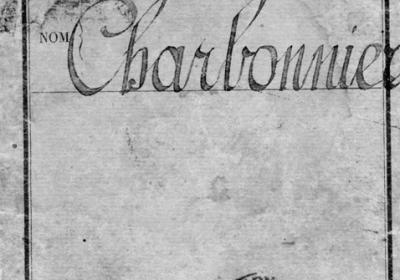 NOM Charbonnier